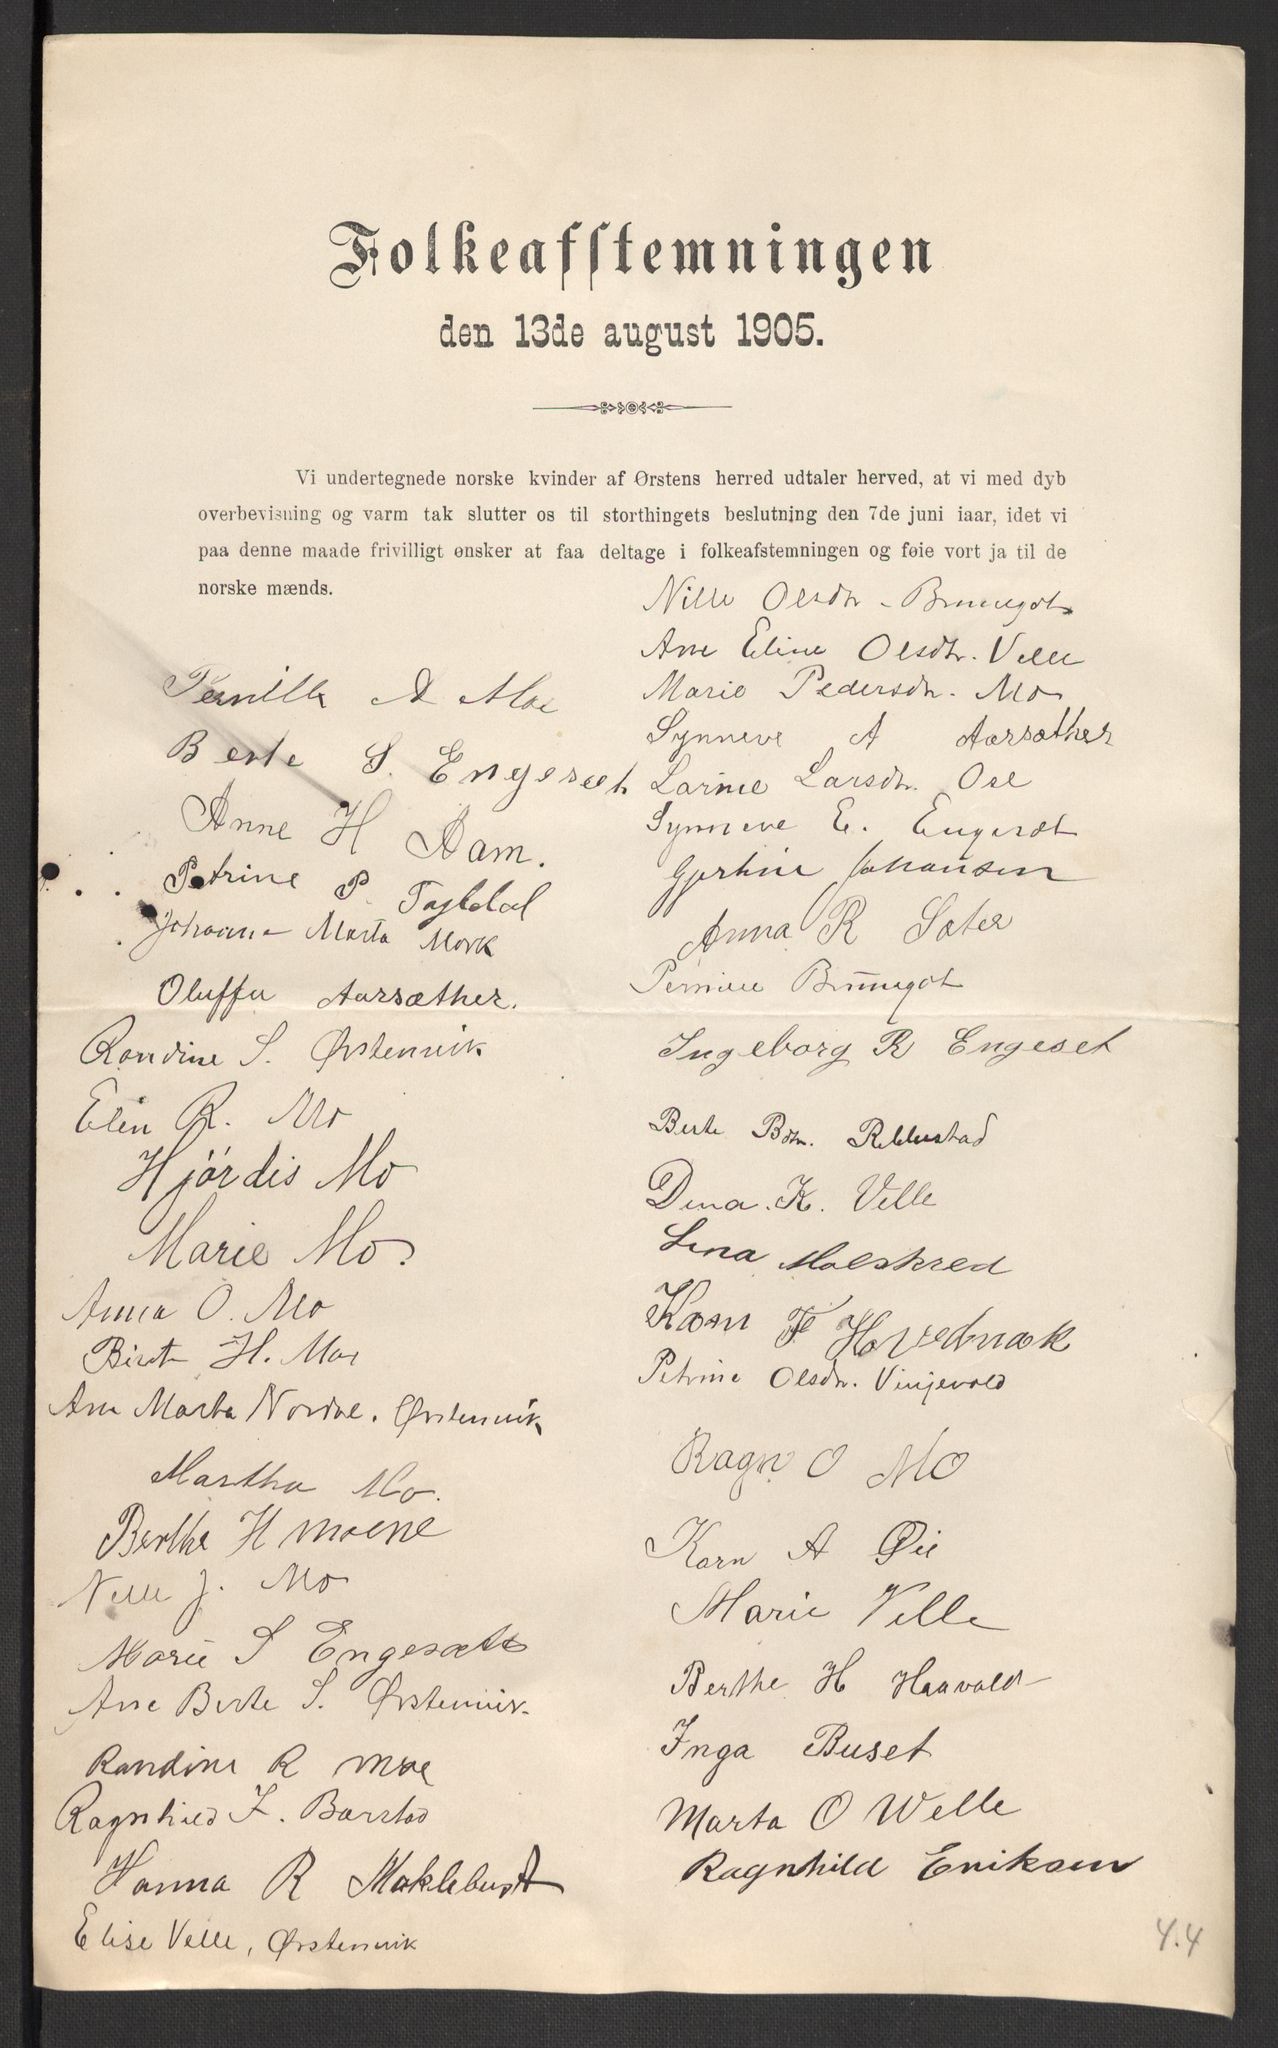 Folkeafstemningen
den 13de august 1905.
Vi undertegnede norske kvinder af Ørstens herred udtaler herved, at vi med dyb
overbevisning og varm tak slutter os til storthingets beslutning den 7de juni iaar, idet vi
paa denne maade frivilligt ønsker at faa deltage i folkeafstemningen og føie vort ja til de
norske mænds.
Pernille A Moe
Berte S. Engeseth
Anne H Aam.
Petrine P
Johanne Marta Mork
Oluffa Aarsæther.
Randine S. Ørstenvik
Elen R. Mo
Hjördis Mo
Marie Mo.
Anna O. Mo
Birth H. Moe
Ane Marta Nordal. Ørstenvik
Martha Mo.
Berthe H moene
Nelle J. Mo
Marie S Engesæth
Ane Berte S. Ørstenvik.
Randine R moe
Ragnhild I. Barstad
Hanna R Maklebust
Elise Velle, Ørstenvik
Nille Olsdtr. Brunegot
Ane Eline Olsdtr. Velle
Marie Pedersdtr. Mo
Synneve A Aarsæther
Larine Larsdtr. Ose
Synneve E. Engeset
Gjertine Johansen
Anna R Sæter
Pernille Brunegot
Ingeborg R Engeset
Berte Rebbestad
Dina. K. Velle
Lina Molskred
Karn F Hovednak
Petrine Olsdtr. Vinjevold
Ragn O Mo
Karn A Øie
Marie Velle
Berthe H Haavold
Inga Buset
Marta O Welle
Ragnhild Eriksen
4.4